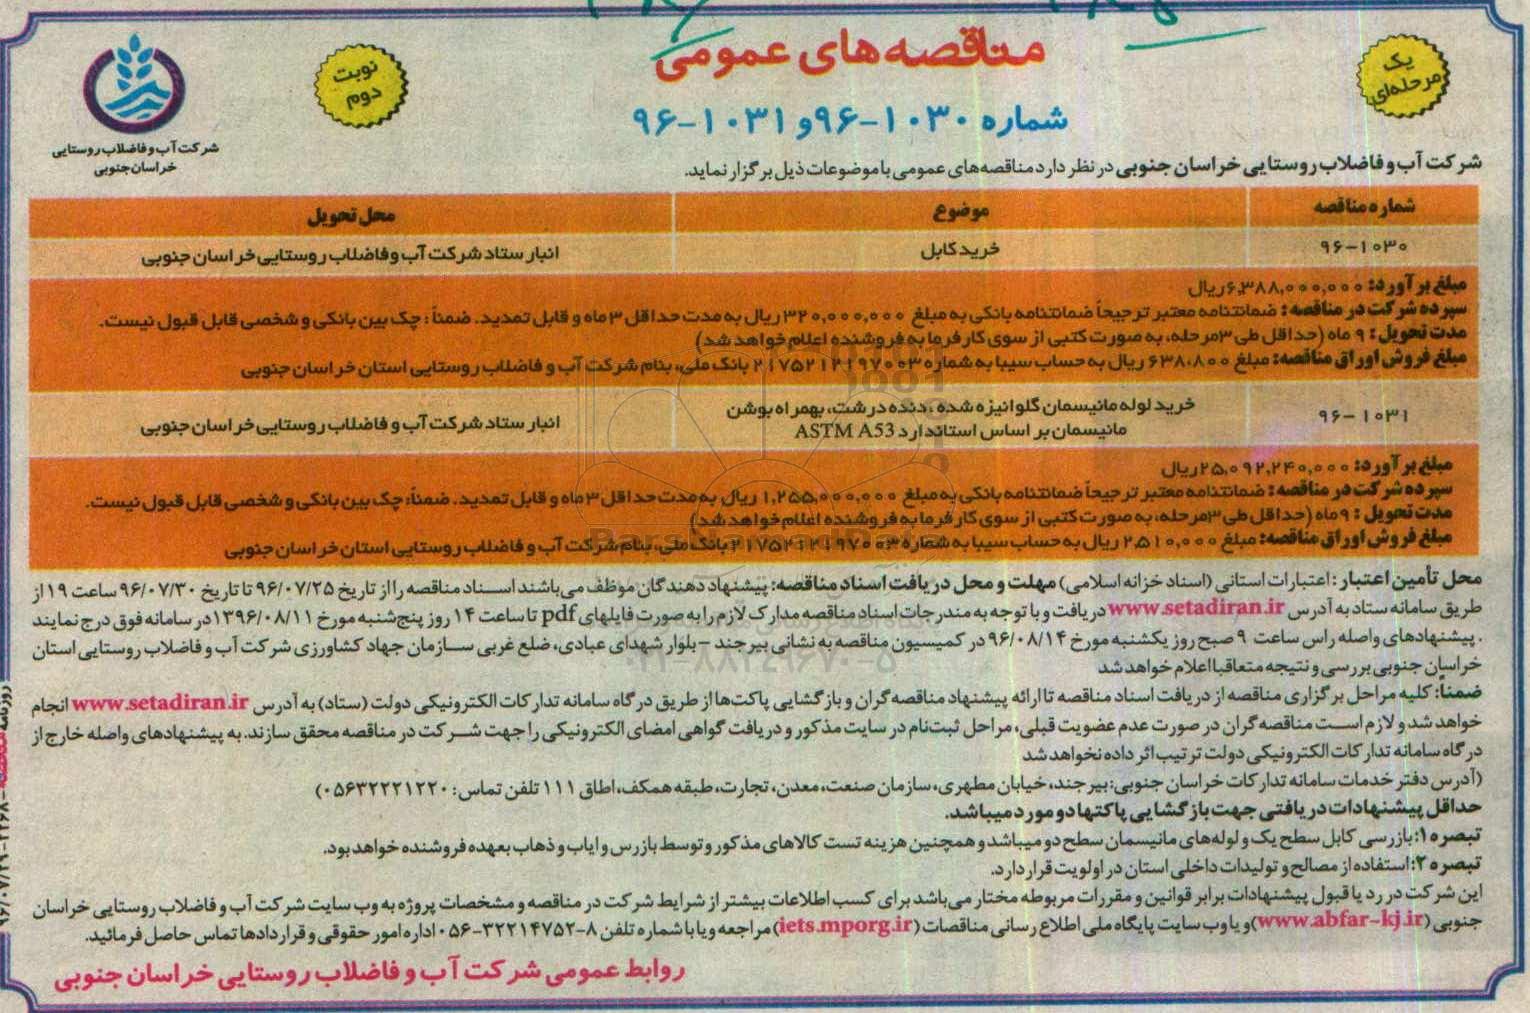 مناقصه‌های عمومی
یک
مرحله‌ای
نوبت
دوم
شماره ۱۰۳۰-۹۶ و ۱۰۳۱-۹۶
شرکت آب و فاضلاب روستایی
خراسان جنوبی
شرکت آب و فاضلاب روستایی خراسان جنوبی در نظر دارد مناقصه‌های عمومی با موضوعات ذیل برگزار نماید.
شماره مناقصه موضوع محل تحویل
۹۶-۱۰۳۰ خرید کابل انبار ستاد شرکت آب و فاضلاب روستایی خراسان جنوبی
مبلغ برآورد: ۶,۳۸۸,۰۰۰,۰۰۰ ریال
سپرده شرکت در مناقصه: ضمانتنامه معتبر ترجیحاً ضمانتنامه بانکی به مبلغ ۳۲۰,۰۰۰,۰۰۰ ریال به مدت حداقل ۳ ماه و قابل تمدید. ضمناً: چک بین بانکی و شخصی قابل قبول نیست.
مدت تحویل: ۹ ماه (حداقل طی ۳ مرحله، به صورت کتبی از سوی کارفرما به فروشنده اعلام خواهد شد)
مبلغ فروش اوراق مناقصه: مبلغ ۶۳۸,۸۰۰ ریال به حساب سیبا به شماره ۲۱۷۵۲۱۲۱۹۷۰۰۳ بانک ملی، بنام شرکت آب و فاضلاب روستایی استان خراسان جنوبی
۹۶-۱۰۳۱ خرید لوله مانیسمان گلوانیزه شده، دنده درشت، بهمراه بوشن
مانیسمان بر اساس استاندارد ASTM A53 انبار ستاد شرکت آب و فاضلاب روستایی خراسان جنوبی
مبلغ برآورد: ۲۵,۰۹۲,۲۴۰,۰۰۰ ریال
سپرده شرکت در مناقصه: ضمانتنامه معتبر ترجیحاً ضمانتنامه بانکی به مبلغ ۱,۲۵۵,۰۰۰,۰۰۰ ریال به مدت حداقل ۳ ماه و قابل تمدید. ضمناً: چک بین بانکی و شخصی قابل قبول نیست.
مدت تحویل: ۹ ماه (حداقل طی ۳ مرحله، به صورت کتبی از سوی کارفرما به فروشنده اعلام خواهد شد)
مبلغ فروش اوراق مناقصه: مبلغ ۲,۵۱۰,۰۰۰ ریال به حساب سیبا به شماره ۲۱۷۵۲۱۲۱۹۷۰۰۳ بانک ملی، بنام شرکت آب و فاضلاب روستایی استان خراسان جنوبی
محل تأمین اعتبار: اعتبارات استانی (اسناد خزانه اسلامی) مهلت و محل دریافت اسناد مناقصه: پیشنهاد دهندگان موظف می‌باشند اسناد مناقصه را از تاریخ ۹۶/۰۷/۲۵ تا تاریخ ۹۶/۰۷/۳۰ ساعت ۱۹ از
طریق سامانه ستاد به آدرس www.setadiran.ir دریافت و با توجه به مندرجات اسناد مناقصه مدارک لازم را به صورت فایلهای pdf تا ساعت ۱۴ روز پنج‌شنبه مورخ ۱۳۹۶/۰۸/۱۱ در سامانه فوق درج نمایند
. پیشنهادهای واصله راس ساعت ۹ صبح روز یکشنبه مورخ ۹۶/۰۸/۱۴ در کمیسیون مناقصه به نشانی بیرجند – بلوار شهدای عبادی، ضلع غربی سازمان جهاد کشاورزی شرکت آب و فاضلاب روستایی استان
خراسان جنوبی بررسی و نتیجه متعاقبا اعلام خواهد شد
ضمناً: کلیه مراحل برگزاری مناقصه از دریافت اسناد مناقصه تا ارائه پیشنهاد مناقصه‌گران و بازگشایی پاکت‌ها از طریق درگاه سامانه تدارکات الکترونیکی دولت (ستاد) به آدرس www.setadiran.ir انجام
خواهد شد و لازم است مناقصه‌گران در صورت عدم عضویت قبلی، مراحل ثبت‌نام در سایت مذکور و دریافت گواهی امضای الکترونیکی را جهت شرکت در مناقصه محقق سازند. به پیشنهادهای واصله خارج از
درگاه سامانه تدارکات الکترونیکی دولت ترتیب اثر داده نخواهد شد
(آدرس دفتر خدمات سامانه تدارکات خراسان جنوبی: بیرجند، خیابان مطهری، سازمان صنعت، معدن، تجارت، طبقه همکف، اطاق ۱۱۱ تلفن تماس: ۰۵۶۳۲۲۲۱۲۲۰)
حداقل پیشنهادات دریافتی جهت بازگشایی پاکتها دو مورد میباشد.
تبصره ۱: بازرسی کابل سطح یک و لوله‌های مانیسمان سطح دو میباشد و همچنین هزینه تست کالاهای مذکور و توسط بازرس و ایاب و ذهاب بعهده فروشنده خواهد بود.
تبصره ۲: استفاده از مصالح و تولیدات داخلی استان در اولویت قرار دارد.
این شرکت در رد یا قبول پیشنهادات برابر قوانین و مقررات مربوطه مختار می‌باشد برای کسب اطلاعات بیشتر از شرایط شرکت در مناقصه و مشخصات پروژه به وب سایت شرکت آب و فاضلاب روستایی خراسان
جنوبی (www.abfar-kj.ir) و یا وب سایت پایگاه ملی اطلاع رسانی مناقصات (iets.mporg.ir) مراجعه و یا با شماره تلفن ۸-۳۲۲۱۴۷۵۲-۰۵۶ اداره امور حقوقی و قراردادها تماس حاصل فرمائید.
روابط عمومی شرکت آب و فاضلاب روستایی خراسان جنوبی
ParsNamadData
۰۲۱-۸۸۳۴۹۶۷۰-۵